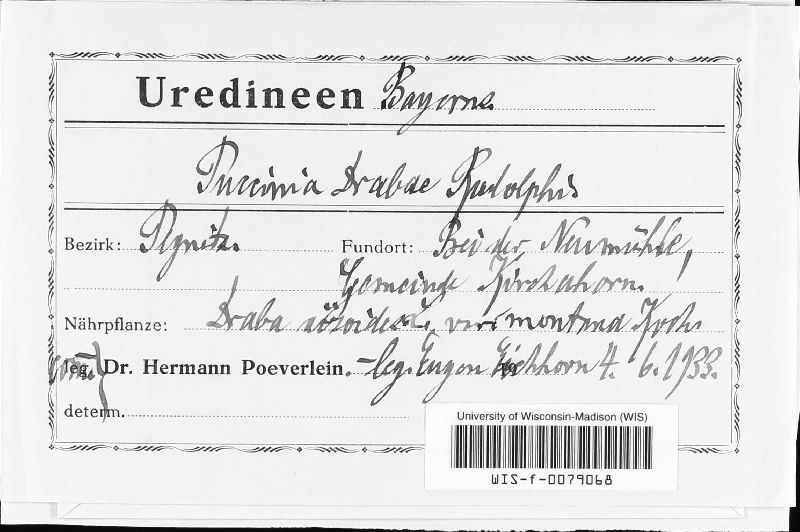 Uredineen Bayerns
Puccinia Drabae Rudolphi
Bezirk: Pegnitz. Fundort: Bei der Neumühle,
Gemeinde Kirchahorn.
Nährpflanze: Draba aizoides L. var. montana Koch
comm. leg. Dr. Hermann Poeverlein. – leg. Eugen Eichhorn 4. 6. 1933.
determ.
University of Wisconsin-Madison (WIS)
WIS-f-0079068